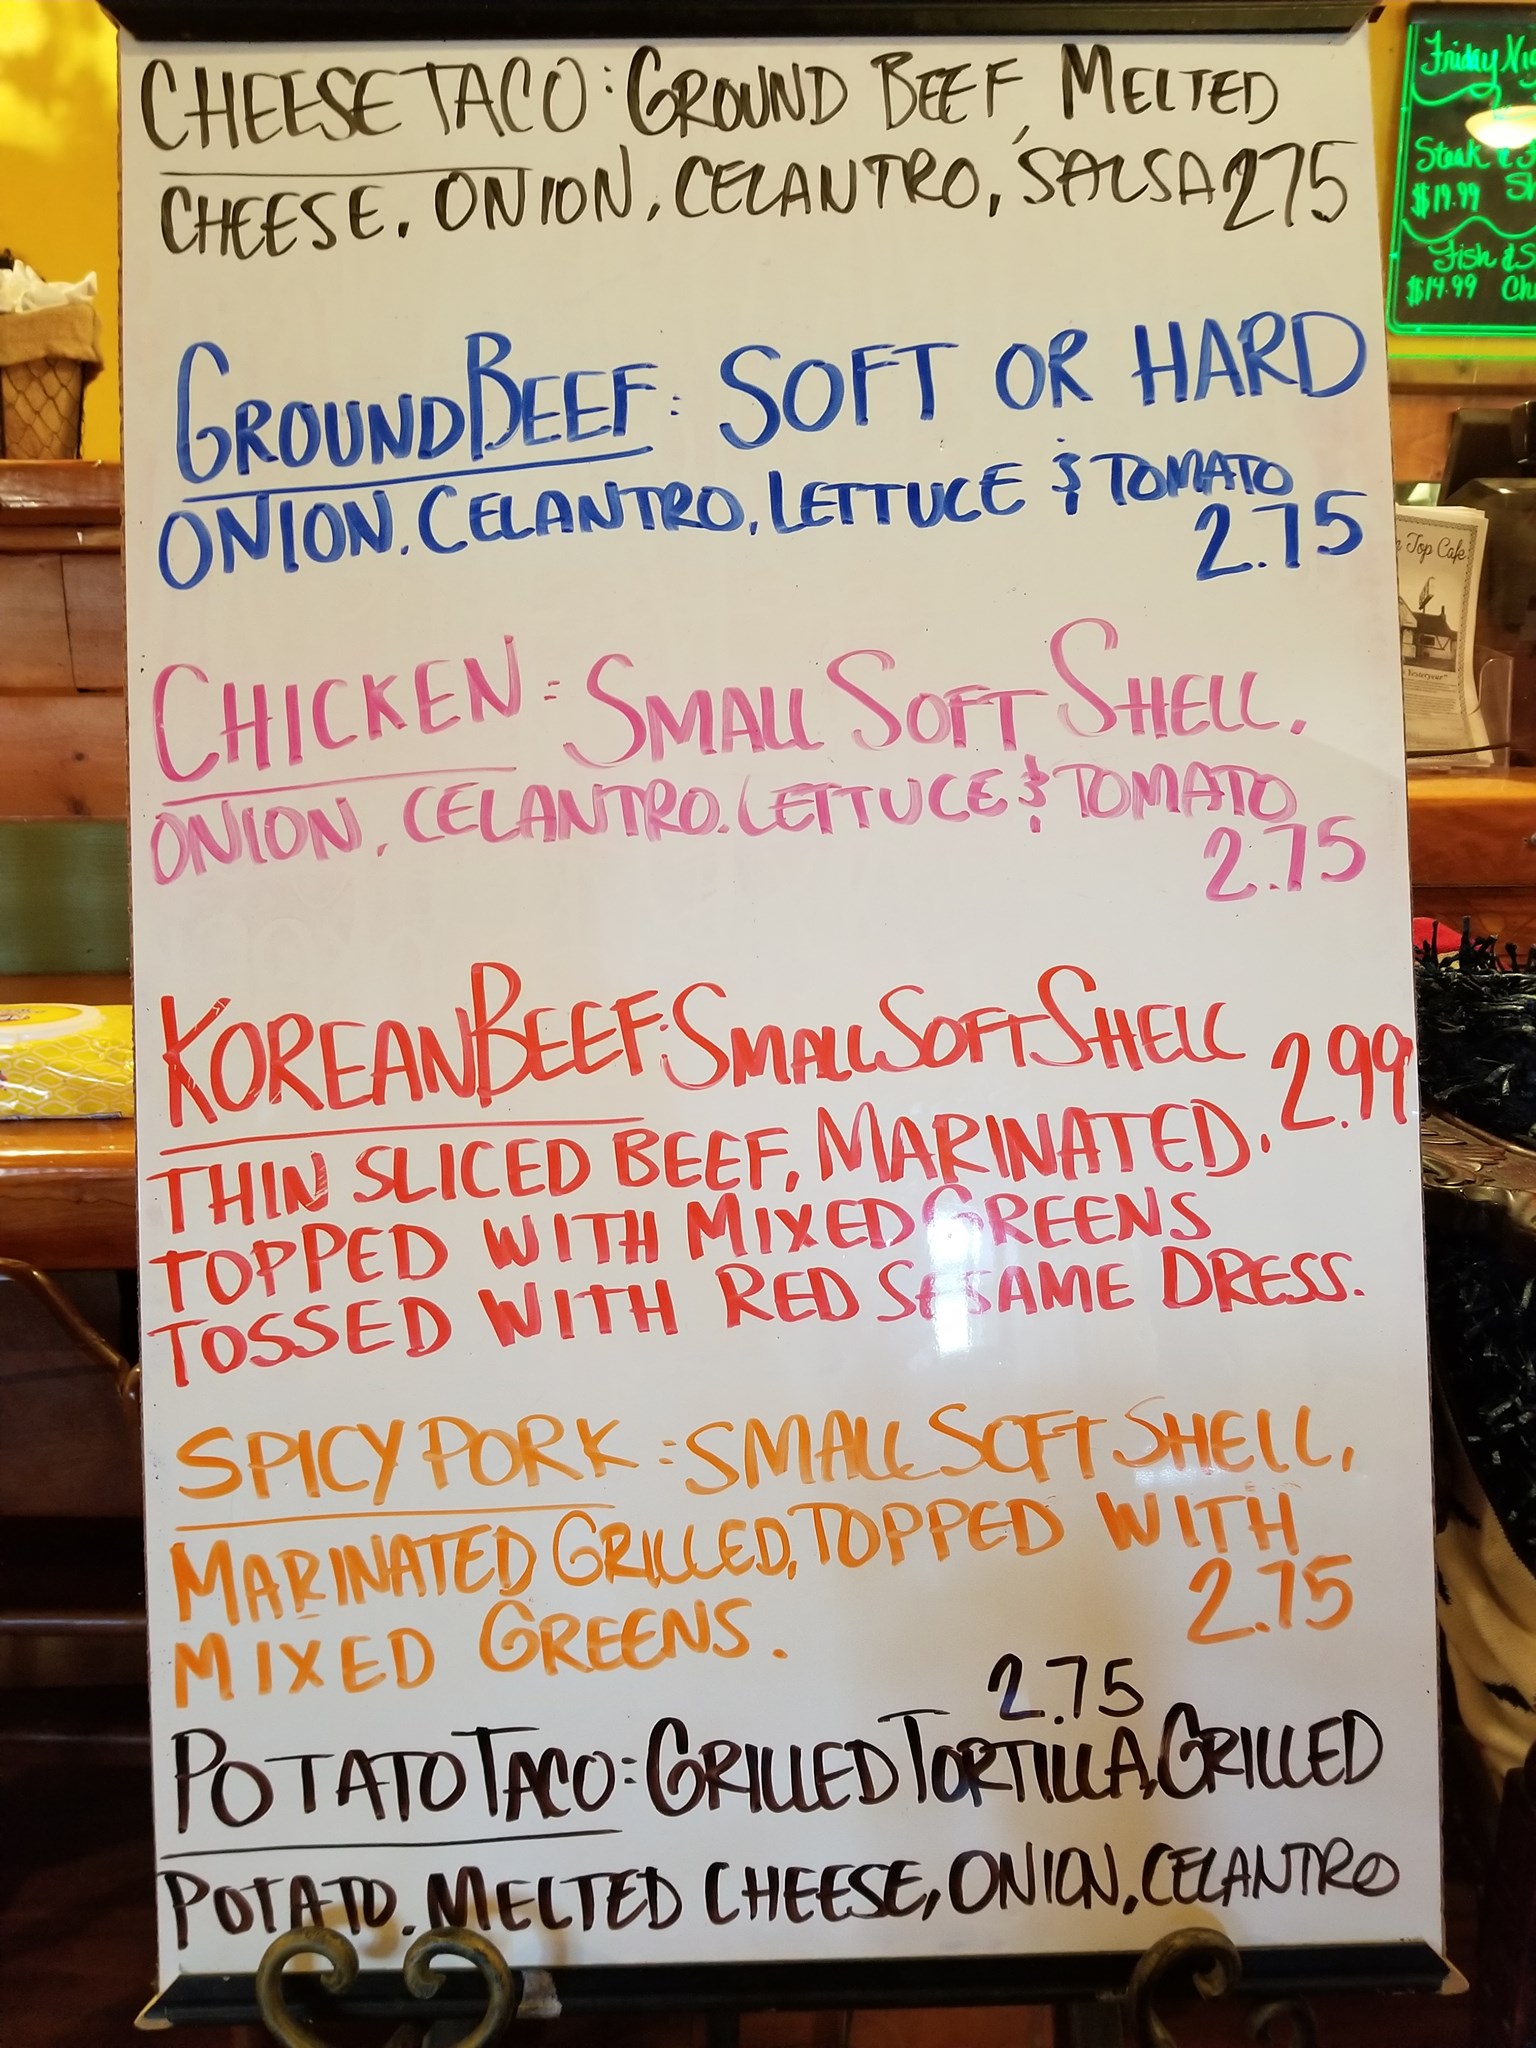 CHEESE TACO: GROUND BEEF, MELTED
CHEESE, ONION, CELANTRO, SALSA 275
GROUND BEEF: SOFT OR HARD
ONION, CELANTRO, LETTUCE & TOMATO
2.75
CHICKEN: SMALL SOFT SHELL,
ONION, CELANTRO, LETTUCE & TOMATO
2.75
KOREAN BEEF: SMALL SOFT SHELL 2.99
THIN SLICED BEEF, MARINATED,
TOPPED WITH MIXED GREENS
TOSSED WITH RED SESAME DRESS.
SPICY PORK: SMALL SOFT SHELL,
MARINATED GRILLED, TOPPED WITH
MIXED GREENS. 2.75
2.75
POTATO TACO: GRILLED TORTILLA, GRILLED
POTATO, MELTED CHEESE, ONION, CELANTRO
Friday
Steak &
$19.99
Fish &
$14.99
Top Cafe
Yesteryear"